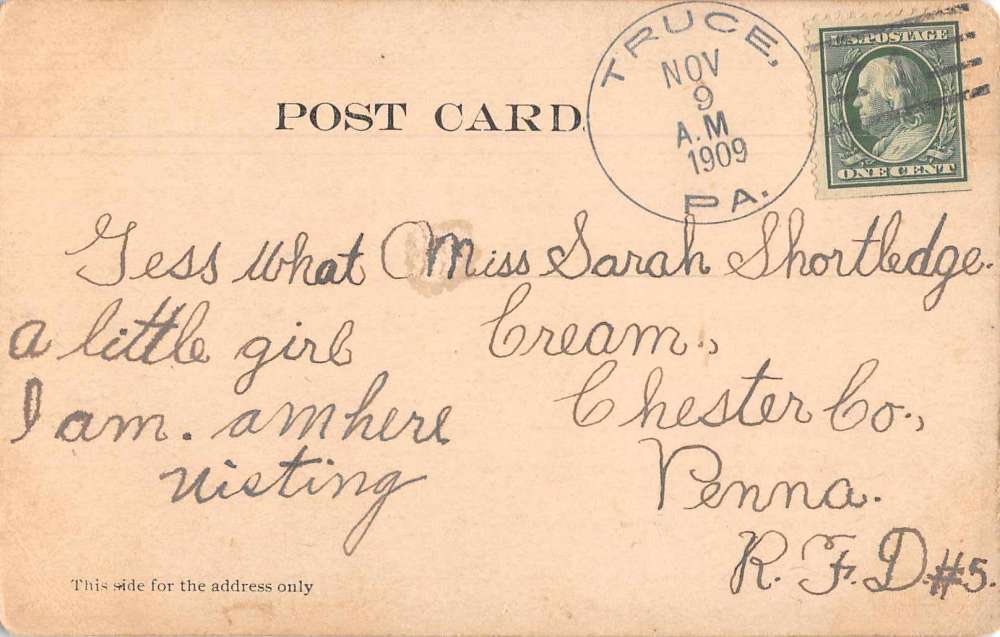 POST CARD
TRUCE,
NOV
9
A.M
1909
PA.
U.S. POSTAGE
ONE CENT
Gess what
a little girl
I am. am here
visting
Miss Sarah Shortledge.
Cream.,
Chester Co.,
Penna.
R. F. D. #5.
This side for the address only